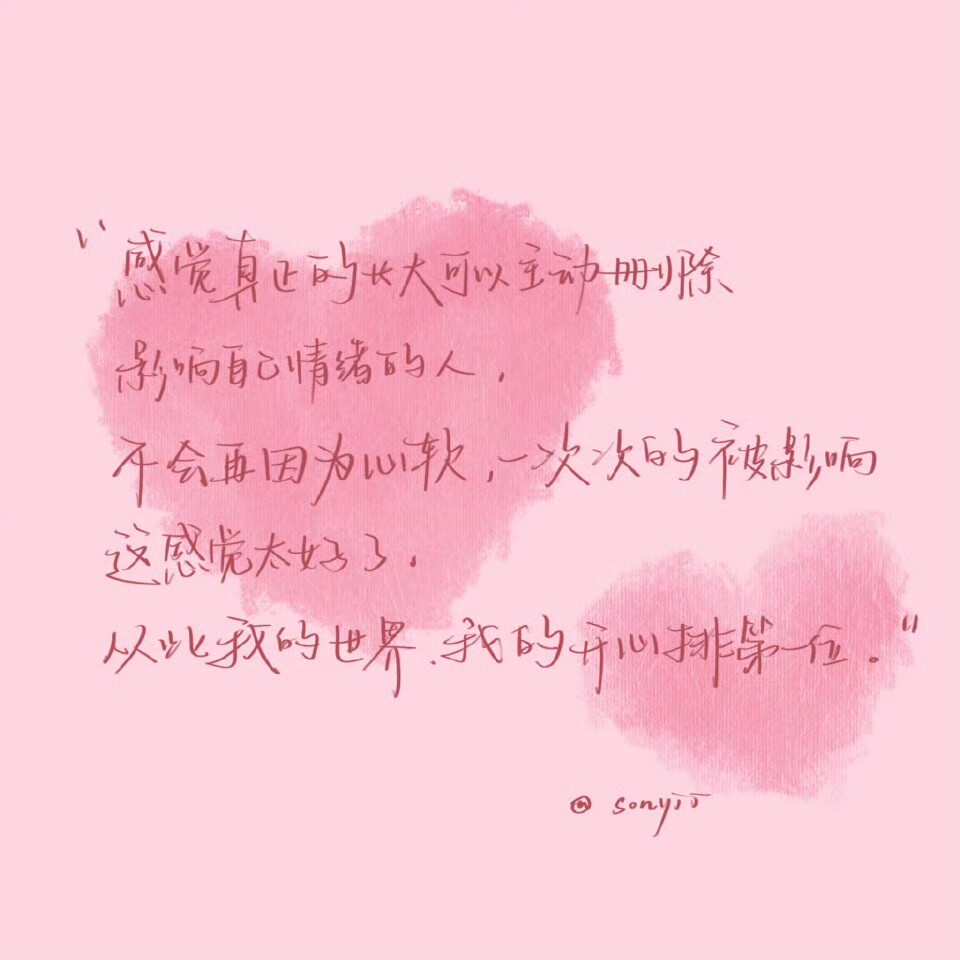 “感觉真正的长大可以主动删除
影响自己情绪的人,
不会再因为心软,一次次的被影响
这感觉太好了.
从此我的世界.我的开心排第一位。”
@sonyjj